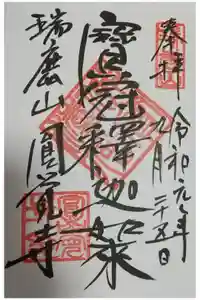 奉拝
令和元年
九月二十五日
寳冠釋迦如来
瑞鹿山圓覺寺